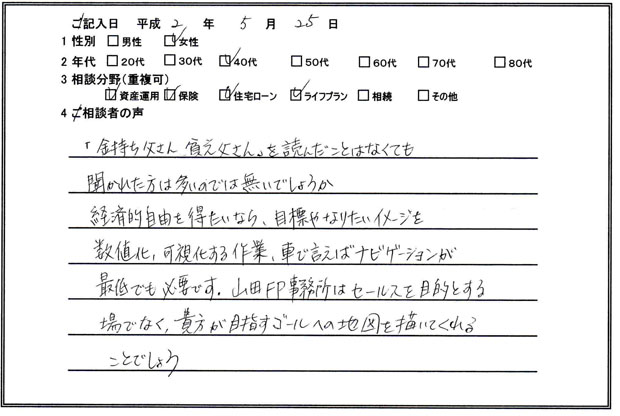 ご記入日 平成 2 年 5 月 25 日
1 性別 □男性 ☑女性
2 年代 □20代 □30代 ☑40代 □50代 □60代 □70代 □80代
3 相談分野(重複可)
☑資産運用 ☑保険 ☑住宅ローン ☑ライフプラン □相続 □その他
4 ご相談者の声
「金持ち父さん 貧乏父さん」を読んだことはなくても
聞かれた方は多いのでは無いでしょうか
経済的自由を得たいなら、目標やなりたいイメージを
数値化、可視化する作業、車で言えばナビゲーションが
最低でも必要です。山田FP事務所はセールスを目的とする
場でなく、貴方が目指すゴールへの地図を描いてくれる
ことでしょう